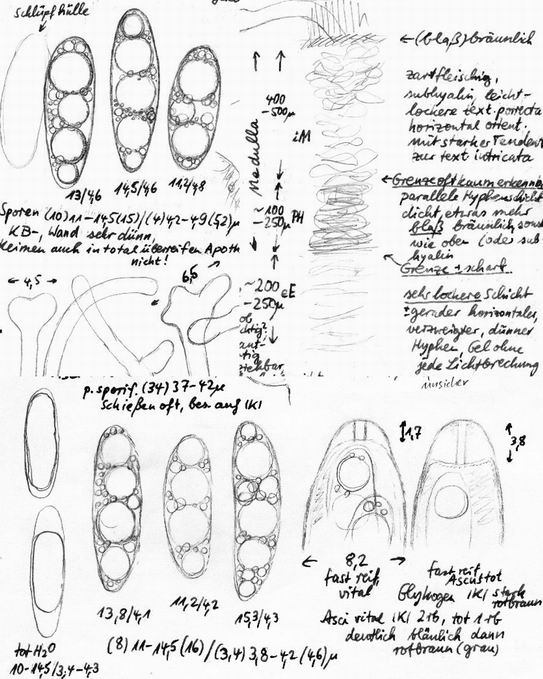 Schlüpfhülle
13/4,6
14,5/4,6
11,2/4,8
Sporen (10) 11–14,5 (15) / (4) 4,2–4,9 (5,2) µ
KB-, Wand sehr dünn,
keimen auch in total überreifen Apoth
nicht!
4,5
6,5
Medulla
400
–500µ
iM
~100
–250µ
PH
~200
–250µ
eE
ob
p. sporif. (34) 37–42µ
Schießen oft, bes. auf IKI
← (blaß) bräunlich
zartfleischig,
subhyalin, leicht-
lockere text. porrecta
horizontal orient.
mit starker Tendenz
zur text intricata
← Grenze oft kaum erkennbar
parallele Hyphenschicht
dicht, etwas mehr
blaß bräunlich, sonst
wie oben (oder sub
hyalin
Grenze ± scharf
sehr lockere Schicht
± gerader horizontaler,
verzweigter, dünner
Hyphen Gel ohne
jede Lichtbrechung
unsicher
13,8/4,1
11,2/4,2
15,3/4,3
tot H₂O
10–14,5/3,4–4,3
(8) 11–14,5 (16) / (3,4) 3,8–4,2 (4,6) µ
1,7
3,8
← 8,2 →
fast reif,
vital
fast reif
Ascus tot
Glykogen IKI stark
rotbraun
Asci vital IKI 2rb, tot 1rb
deutlich bläulich dann
rotbraun (grau)